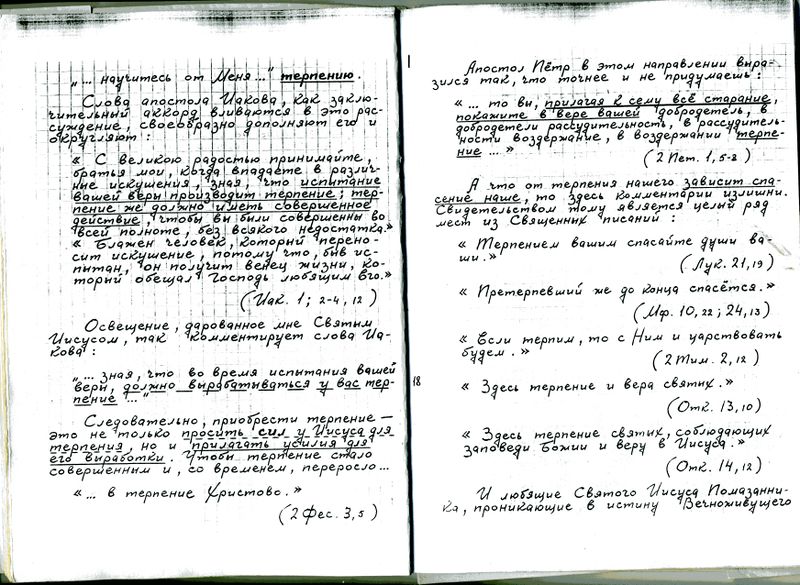 „... научитесь от Меня...” терпению.
Слова апостола Иакова, как заклю-
чительный аккорд вливаются в это рас-
суждение, своеобразно дополняют его и
округляют:
« С великою радостью принимайте,
братья мои, когда впадаете в различ-
ные искушения, зная, что испытание
вашей веры производит терпение; тер-
пение же должно иметь совершенное
действие, чтобы вы были совершенны во
всей полноте, без всякого недостатка.»
« Блажен человек, который перено-
сит искушение, потому что, быв ис-
пытан, он получит венец жизни, ко-
торый обещал Господь любящим Его.»
(Иак. 1; 2-4, 12)
Освещение, дарованное мне Святым
Иисусом, так комментирует слова Иа-
кова:
„... зная, что во время испытания вашей
веры, должно вырабатываться у вас тер-
пение ...”
Следовательно, приобрести терпение —
это не только просить сил у Иисуса для
терпения, но и прилагать усилия для
его выработки. Чтобы терпение стало
совершенным и, со временем, переросло...
«... в терпение Христово.»
(2 Фес. 3,5)
Апостол Пётр в этом направлении выра-
зился так, что точнее и не придумаешь:
« ... то вы, прилагая к сему всё старание,
покажите в вере вашей добродетель, в
добродетели рассудительность, в рассудитель-
ности воздержание, в воздержании терпе-
ние ... »
(2 Пет. 1, 5-8)
А что от терпения нашего зависит спа-
сение наше, то здесь комментарии излишни.
Свидетельством тому является целый ряд
мест из Священных писаний:
« Терпением вашим спасайте души ва-
ши.»
(Лук. 21,19)
« Претерпевший же до конца спасётся.»
(Мф. 10,22; 24,13)
« Если терпим, то с Ним и царствовать
будем.»
(2 Тим. 2,12)
18
« Здесь терпение и вера святых.»
(Отк. 13,10)
« Здесь терпение святых, соблюдающих
заповеди Божии и веру в Иисуса.»
(Отк. 14,12)
И любящие Святого Иисуса Помазанни-
ка, проникающие в истину Вечноживущего